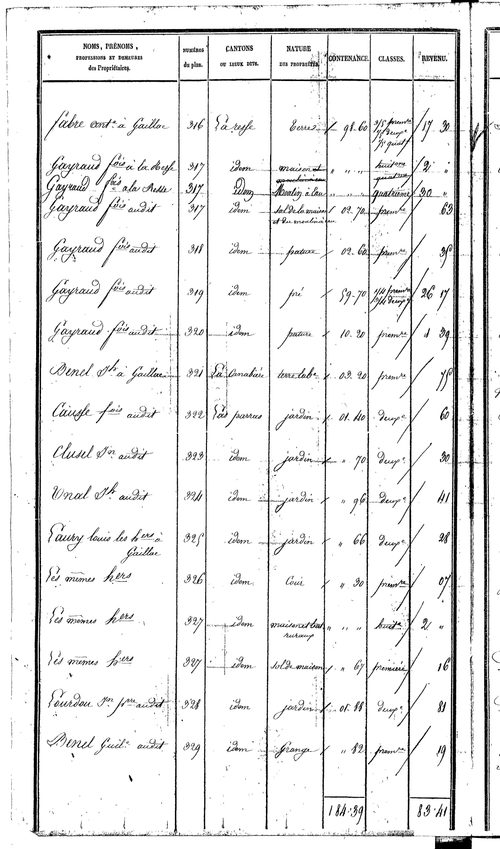 NOMS, PRÉNOMS, PROFESSIONS ET DEMEURES des Propriétaires. NUMÉROS du plan. CANTONS OU LIEUX DITS. NATURE DES PROPRIÉTÉS. CONTENANCE. CLASSES. REVENU.
fabre à Gaillac 316 La resse terre 98.60 3/5 premre 1/5 deuxe 1/5 quate 17 30
Gayraud fois à la Resse 317 idem maison et moulin à eau " " " huitme quatme 2 "
Gayraud fois à la Resse 317 idem Moulin à eau " " " quatrième 30 "
Gayraud fois audit 317 idem sol de la maison et du moulin à eau 02.70 premre 63
Gayraud fois audit 318 idem pature 02.60 premre 35
Gayraud fois audit 319 idem pré 59.70 1/4 premre 3/4 deuxe 26 17
Gayraud fois audit 320 idem pature 10.20 premre 1 39
Benel Jh à Gaillac 321 La Canabière terre labe 03.20 premre 75
Causse fois audit 322 Las parrus jardin 01.40 deuxe 60
Clusel Jn audit 323 idem jardin " 70 deuxe 30
Unal Jh audit 324 idem jardin " 96 deuxe 41
Laury louis les hers à Gaillac 325 idem jardin " 66 deuxe 28
Les mêmes hers 326 idem Cour " 30 premre 07
Les mêmes hers 327 idem maison et bat ruraux " " " huite 2 "
Les mêmes hers 327 idem sol de maison " 67 première 16
Lourdou Jn pre audit 328 idem jardin 01.88 deuxe 81
Benel Guile audit 329 idem Grange " 82 premre 19
184.39 83.41